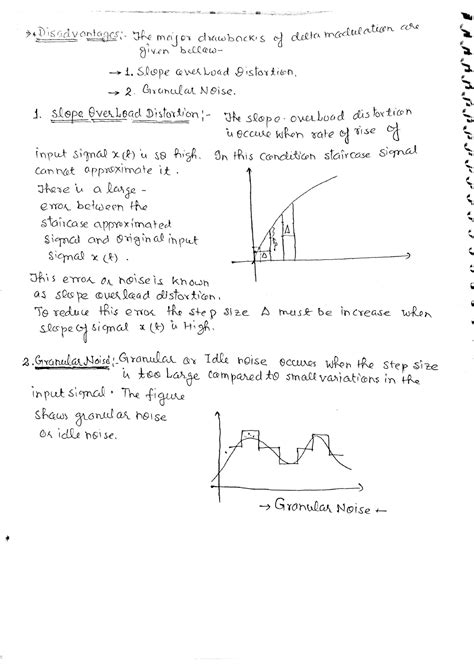 Disadvantages:- The major drawbacks of delta madulation are
given bellow-
→ 1. Slope over Load Distortion.
→ 2. Granular Noise.
1. Slope Over Load Distortion:- The slope-over load distortion
is occurs when rate of rise of
input signal x(t) is so high. In this Condition staircase signal
cannot approximate it.
There is a large-
error between the
staircase approximated
signal and original input
signal x(t).
Δ
Δ
This error or noise is known
as slope over load distortion.
To reduce this error the step size Δ must be increase when
slope of signal x(t) is High.
2. Granular Noise:- Granular or Idle noise occures when the step size
is too Large compared to small variations in the
input signal. The figure
shows granular noise
or idle noise.
→ Granular Noise ←